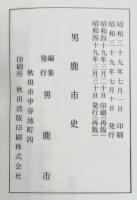 昭和三十九年七月一日 印刷
昭和三十九年七月十日 発行
昭和四十九年三月二十日 印刷(再版)
昭和四十九年三月三十日 発行(再版)
男鹿市史
編集
発行 男鹿市
秋田市中谷地町四
印刷所 秋田活版印刷株式会社